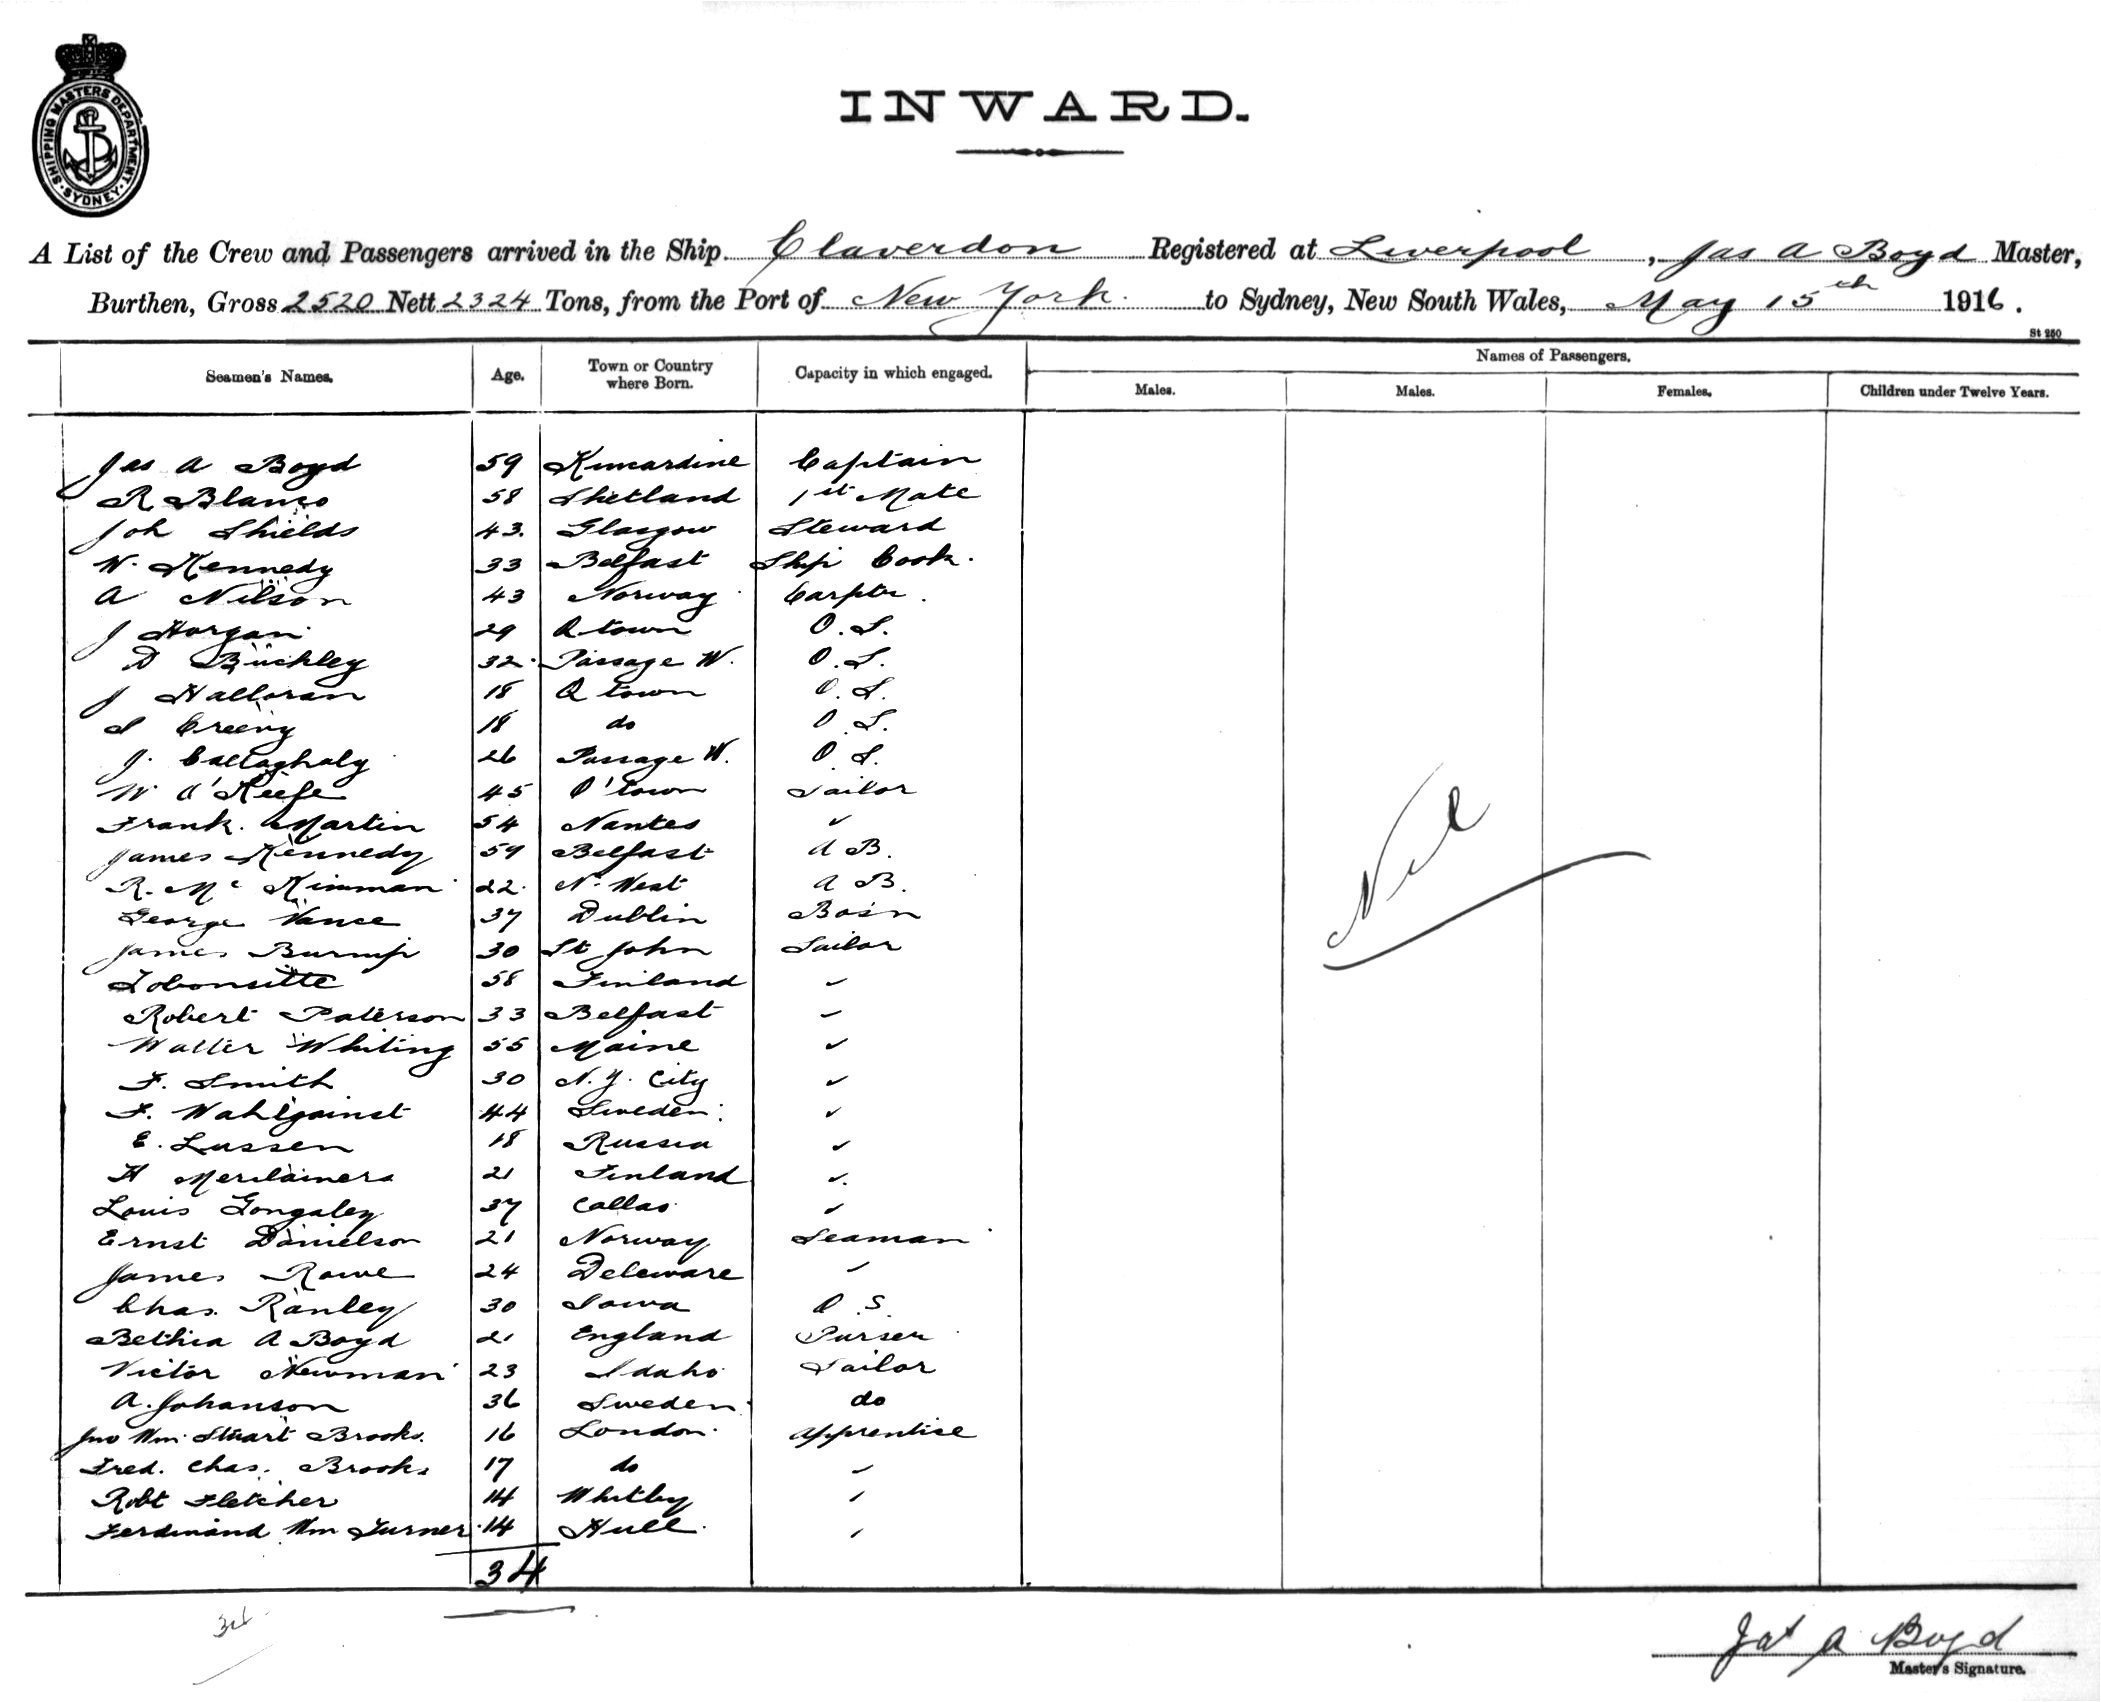 SHIPPING MASTERS DEPARTMENT
SYDNEY
INWARD.
A List of the Crew and Passengers arrived in the Ship Claverdon Registered at Liverpool, Jas A Boyd Master,
Burthen, Gross 2520 Nett 2324 Tons, from the Port of New York. to Sydney, New South Wales, May 15th 1916.
St 250
Names of Passengers.
Seamen's Names. Age. Town or Country where Born. Capacity in which engaged. Males. Males. Females. Children under Twelve Years.
Jas A Boyd 59 Kincardine Captain
R Blance 58 Shetland 1st Mate
Joh Shields 43. Glasgow Steward
W. Kennedy 33 Belfast Ship Cook.
A Nilson 43 Norway Carptr.
J Horgan 29 Q town O.S.
D Buckley 32. Passage W. O.S.
J Halloran 18 Q town O.S.
S 18 do O.S.
J. 26 Passage W. O.S.
W O'Keefe 45 Q'town Sailor
Frank. Martin 54 Nantes "
James Kennedy 59 Belfast A B.
R. Mc Kinman 22. N. West A B.
George Vance 37 Dublin Bos'n
James Burnip 30 St John Sailor
58 Finland "
Robert Paterson 33 Belfast "
Walter Whiting 55 Maine "
F. Smith 30 N.Y. City "
F. 44 Sweden. "
E. Lassen 18 Russia "
H 21 Finland "
Louis Gongaley 37 Callao "
Ernst Danielson 21 Norway Seaman
James Rowe 24 Deleware "
Chas. Ranley 30 Iowa O S.
Bethia A Boyd 21 England Purser
Victor Newman 23 Idaho Sailor
A. Johanson 36 Sweden. do
Jno Wm. Stuart Brooks. 16 London. Apprentice
Fred. Chas. Brooks 17 do "
Robt Fletcher 14 Whitby "
Ferdinand Wm Turner 14 Hull. "
34
Nil
34
Jas A Boyd
Master's Signature.